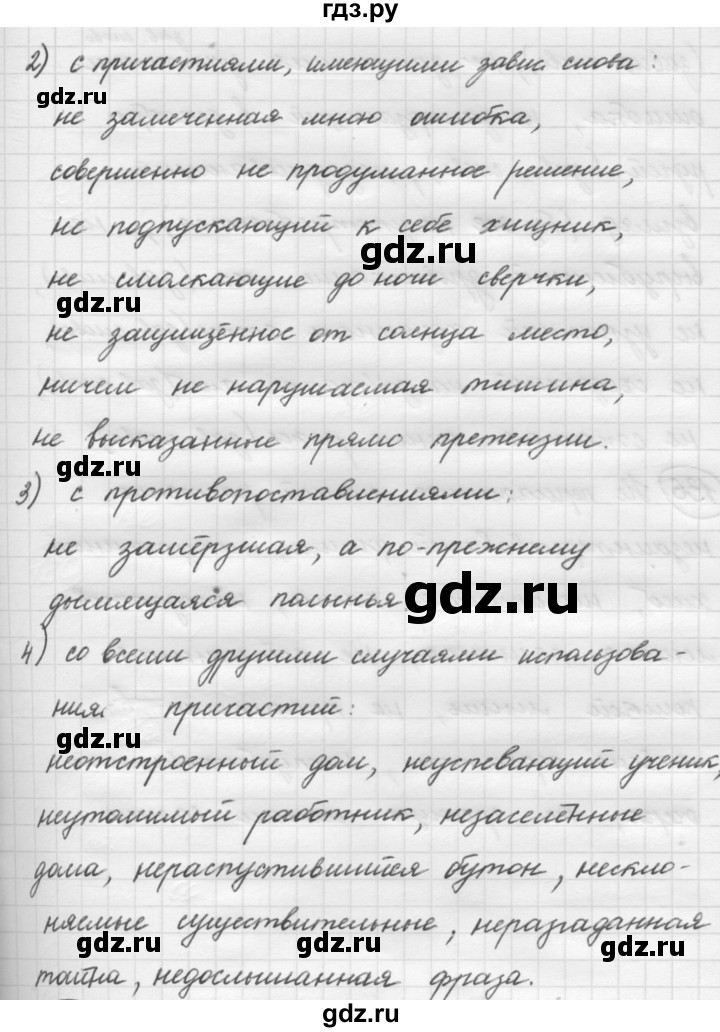 гдз.ру
2) с причастиями, имеющими завис. слова:
gdz.ru
не замеченная мною ошибка,
совершенно не продуманное решение,
не подпускающий к себе хищник,
gdz.ru
не смолкающие до ночи сверчки,
gdz.ru
не защищённое от солнца место,
ничем не нарушаемая тишина,
не высказанные прямо претензии.
gdz.ru
3) с противопоставлениями:
не замёрзшая, а по-прежнему
дымящаяся полынья
gdz.ru
4) со всеми другими случаями использова-
ния причастий:
gdz.ru
неотстроенный дом, неуспевающий ученик,
неутомимый работник, незаселённые
дома, нераспустившийся бутон, нескло-
няемые существительные, неразгаданная
gdz.ru gdz.ru gdz.ru
тайна, недослышанная фраза.
gdz.ru